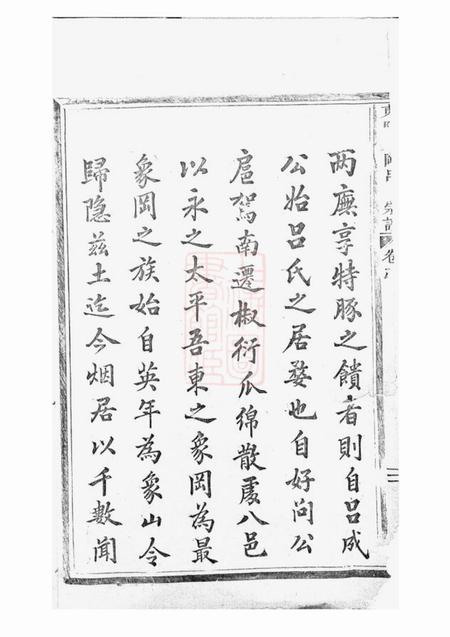 两廡享特豚之饋者則自吕成
公始吕氏之居婺也自好问公
扈駕南遷椒衍瓜绵散處八邑
以永之太平吾東之象岡為最
象岡之族始自英年為象山令
歸隐兹土迄今烟居以千數闻